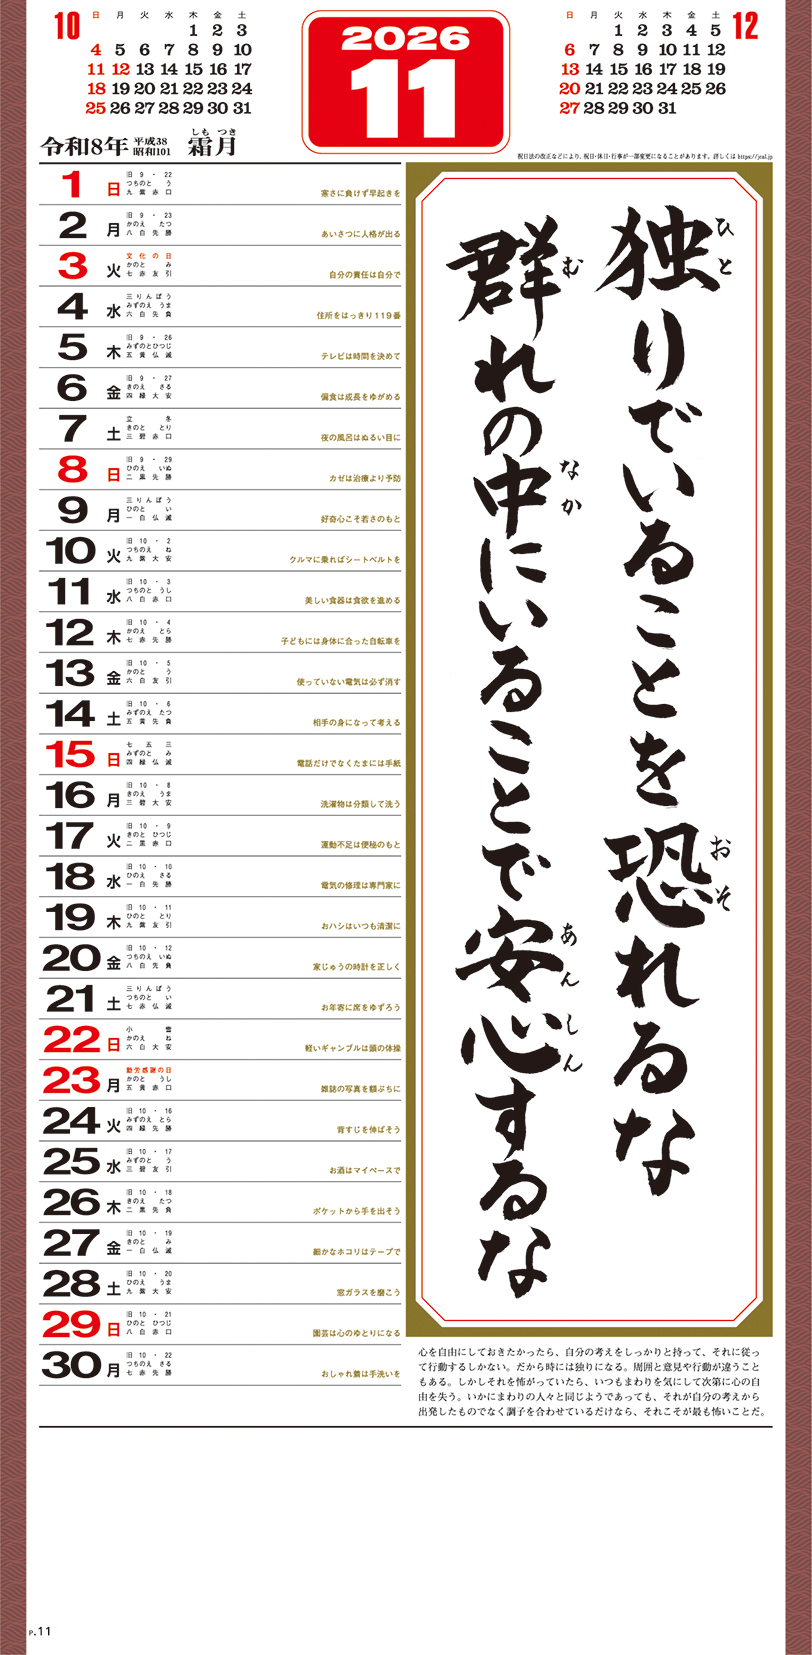 10
日 月 火 水 木 金 土
1 2 3
4 5 6 7 8 9 10
11 12 13 14 15 16 17
18 19 20 21 22 23 24
25 26 27 28 29 30 31
2026
11
12
日 月 火 水 木 金 土
1 2 3 4 5
6 7 8 9 10 11 12
13 14 15 16 17 18 19
20 21 22 23 24 25 26
27 28 29 30 31
令和8年 平成38 昭和101 霜月
しも つき
祝日法の改正などにより、祝日・休日・行事が一部変更になることがあります。詳しくは https://jcal.jp
1 日 旧9・22 つちのと う 九紫赤口 寒さに負けず早起きを
2 月 旧9・23 かのえ たつ 八白先勝 あいさつに人格が出る
3 火 文化の日 かのと み 七赤友引 自分の責任は自分で
4 水 三りんぼう みずのえ うま 六白先負 住所をはっきり119番
5 木 旧9・26 みずのとひつじ 五黄仏滅 テレビは時間を決めて
6 金 旧9・27 きのえ さる 四緑大安 偏食は成長をゆがめる
7 土 立冬 きのと とり 三碧赤口 夜の風呂はぬるい目に
8 日 旧9・29 ひのえ いぬ 二黒先勝 カゼは治療より予防
9 月 三りんぼう ひのと い 一白仏滅 好奇心こそ若さのもと
10 火 旧10・2 つちのえ ね 九紫大安 クルマに乗ればシートベルトを
11 水 旧10・3 つちのと うし 八白赤口 美しい食器は食欲を進める
12 木 旧10・4 かのえ とら 七赤先勝 子どもには身体に合った自転車を
13 金 旧10・5 かのと う 六白友引 使っていない電気は必ず消す
14 土 旧10・6 みずのえ たつ 五黄先負 相手の身になって考える
15 日 七五三 みずのと み 四緑仏滅 電話だけでなくたまには手紙
16 月 旧10・8 きのえ うま 三碧大安 洗濯物は分類して洗う
17 火 旧10・9 きのと ひつじ 二黒赤口 運動不足は便秘のもと
18 水 旧10・10 ひのえ さる 一白先勝 電気の修理は専門家に
19 木 旧10・11 ひのと とり 九紫友引 おハシはいつも清潔に
20 金 旧10・12 つちのえ いぬ 八白先負 家じゅうの時計を正しく
21 土 三りんぼう つちのと い 七赤仏滅 お年寄に席をゆずろう
22 日 小雪 かのえ ね 六白大安 軽いギャンブルは頭の体操
23 月 勤労感謝の日 かのと うし 五黄赤口 雑誌の写真を額ぶちに
24 火 旧10・16 みずのえ とら 四緑先勝 背すじを伸ばそう
25 水 旧10・17 みずのと う 三碧友引 お酒はマイペースで
26 木 旧10・18 きのえ たつ 二黒先負 ポケットから手を出そう
27 金 旧10・19 きのと み 一白仏滅 細かなホコリはテープで
28 土 旧10・20 ひのえ うま 九紫大安 窓ガラスを磨こう
29 日 旧10・21 ひのと ひつじ 八白赤口 園芸は心のゆとりになる
30 月 旧10・22 つちのえ さる 七赤先勝 おしゃれ着は手洗いを
独りでいることを恐れるな
ひと
おそ
群れの中にいることで安心するな
む
なか
あんしん
心を自由にしておきたかったら、自分の考えをしっかりと持って、それに従っ
て行動するしかない。だから時には独りになる。周囲と意見や行動が違うこと
もある。しかしそれを怖がっていたら、いつもまわりを気にして次第に心の自
由を失う。いかにまわりの人々と同じようであっても、それが自分の考えから
出発したものでなく調子を合わせているだけなら、それこそが最も怖いことだ。
P.11